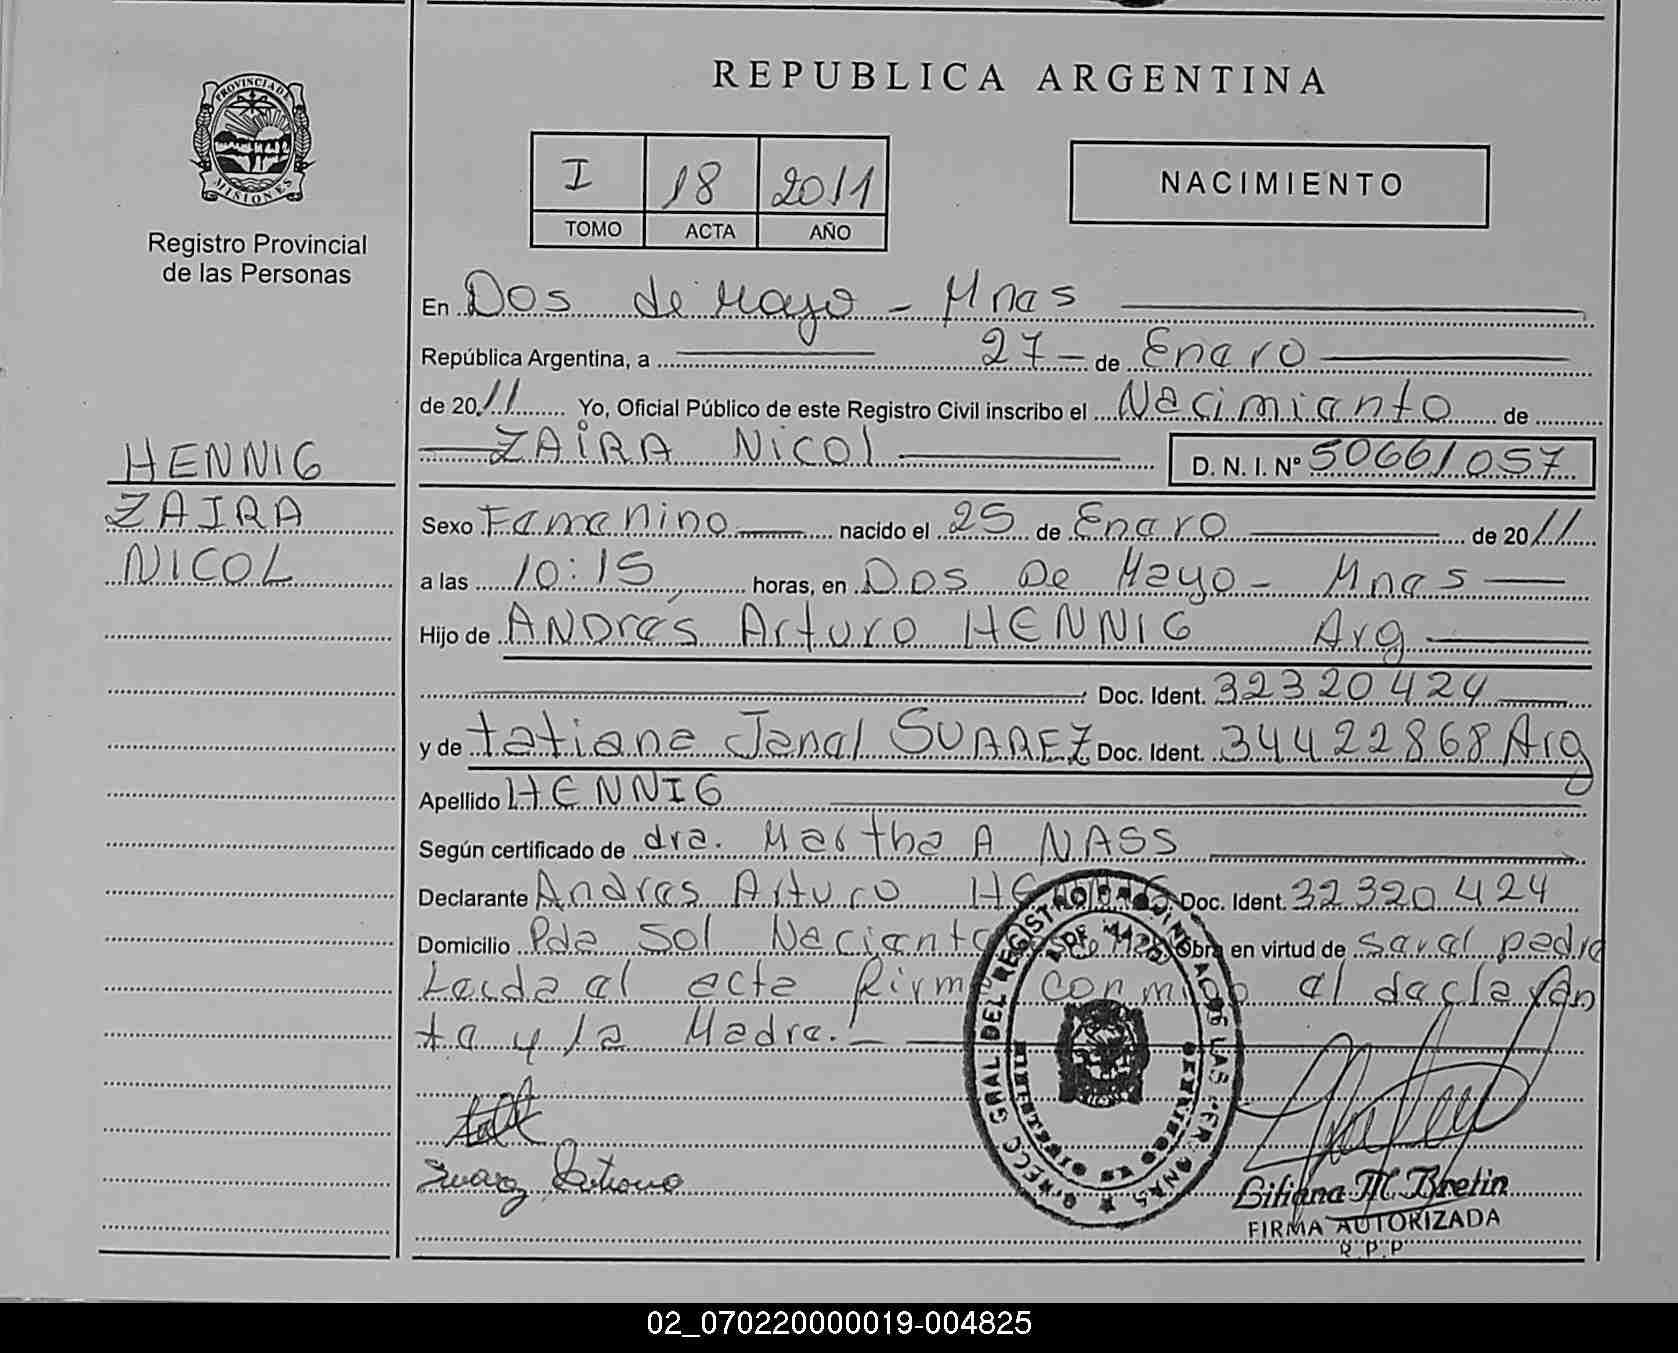 REPUBLICA ARGENTINA
PROVINCIA DE MISIONES
Registro Provincial
de las Personas
I 18 2011
TOMO ACTA AÑO
NACIMIENTO
En Dos de Mayo - Mnas
República Argentina, a 27 - de Enero
de 2011 Yo, Oficial Público de este Registro Civil inscribo el Nacimiento de
ZAIRA NICOL D. N. I. Nº 50661057
HENNIG
ZAIRA
NICOL
Sexo Femenino nacido el 25 de Enero de 2011
a las 10:15 horas, en Dos De Mayo - Mnas
Hijo de ANDrés Arturo HENNIG Arg
Doc. Ident. 32320424
y de tatiana Janal SUAREZ Doc. Ident. 34422868 Arg
Apellido HENNIG
Según certificado de dra. Martha A NASS
Declarante Andres Arturo Doc. Ident. 32320424
Domicilio Pda Sol Naciente Obra en virtud de ser el padre
Leida el acta firma conmigo el declaran
te y la Madre. -
DIRECC GRAL DEL REGISTRO PROVINCIAL DE LAS PERSONAS
DOS DE MAYO
Suarez Tatiana
Liliana M. Bretin
FIRMA AUTORIZADA
R.P.P
02_070220000019-004825